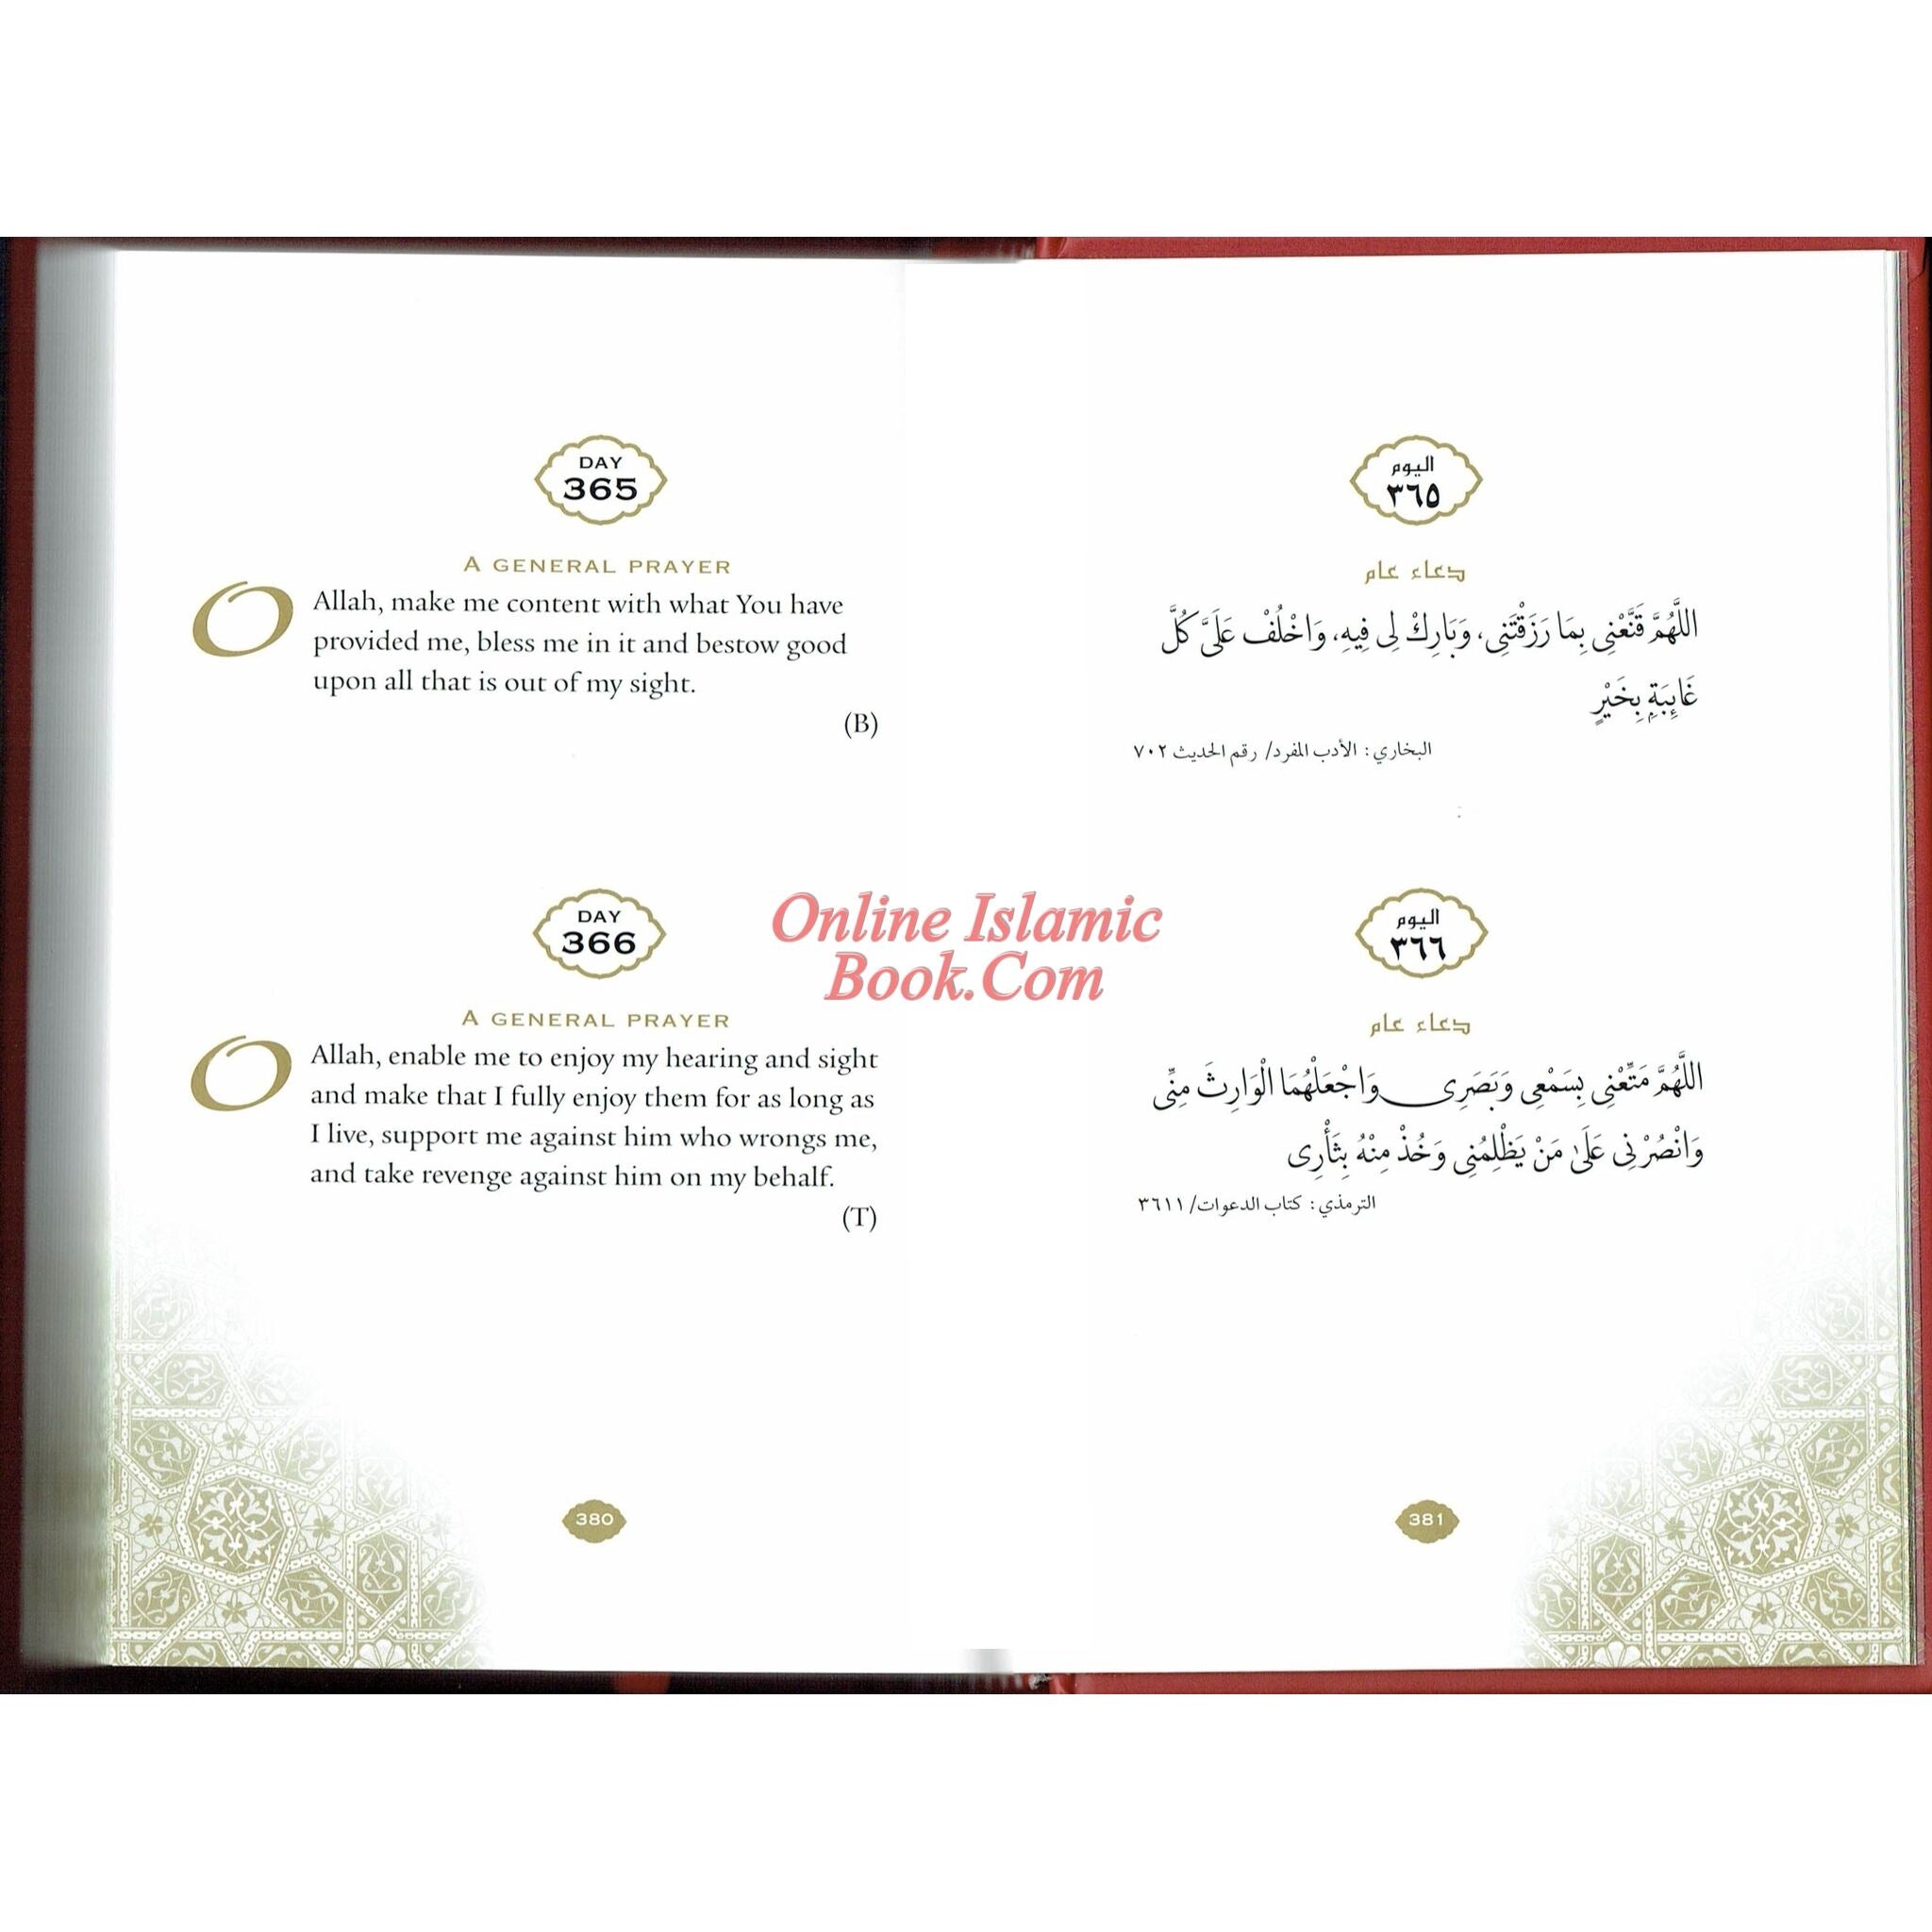 DAY
365
A GENERAL PRAYER
O Allah, make me content with what You have
provided me, bless me in it and bestow good
upon all that is out of my sight.
(B)
DAY
366
A GENERAL PRAYER
O Allah, enable me to enjoy my hearing and sight
and make that I fully enjoy them for as long as
I live, support me against him who wrongs me,
and take revenge against him on my behalf.
(T)
380
Online Islamic
Book.Com
اليوم
٣٦٥
دعاء عام
اللَّهُمَّ قَنَّعْنِى بِمَا رَزَقْتَنِى، وَبَارِكْ لِى فِيهِ، وَاخْلُفْ عَلَىَّ كُلَّ
غَائِبَةٍ بِخَيْرٍ
البخاري: الأدب المفرد/ رقم الحديث ٧٠٢
اليوم
٣٦٦
دعاء عام
اللَّهُمَّ مَتِّعْنِى بِسَمْعِى وَبَصَرِى وَاجْعَلْهُمَا الْوَارِثَ مِنِّى
وَانْصُرْنِى عَلَىٰ مَنْ يَظْلِمُنِى وَخُذْ مِنْهُ بِثَأْرِى
الترمذي: كتاب الدعوات/ ٣٦١١
381